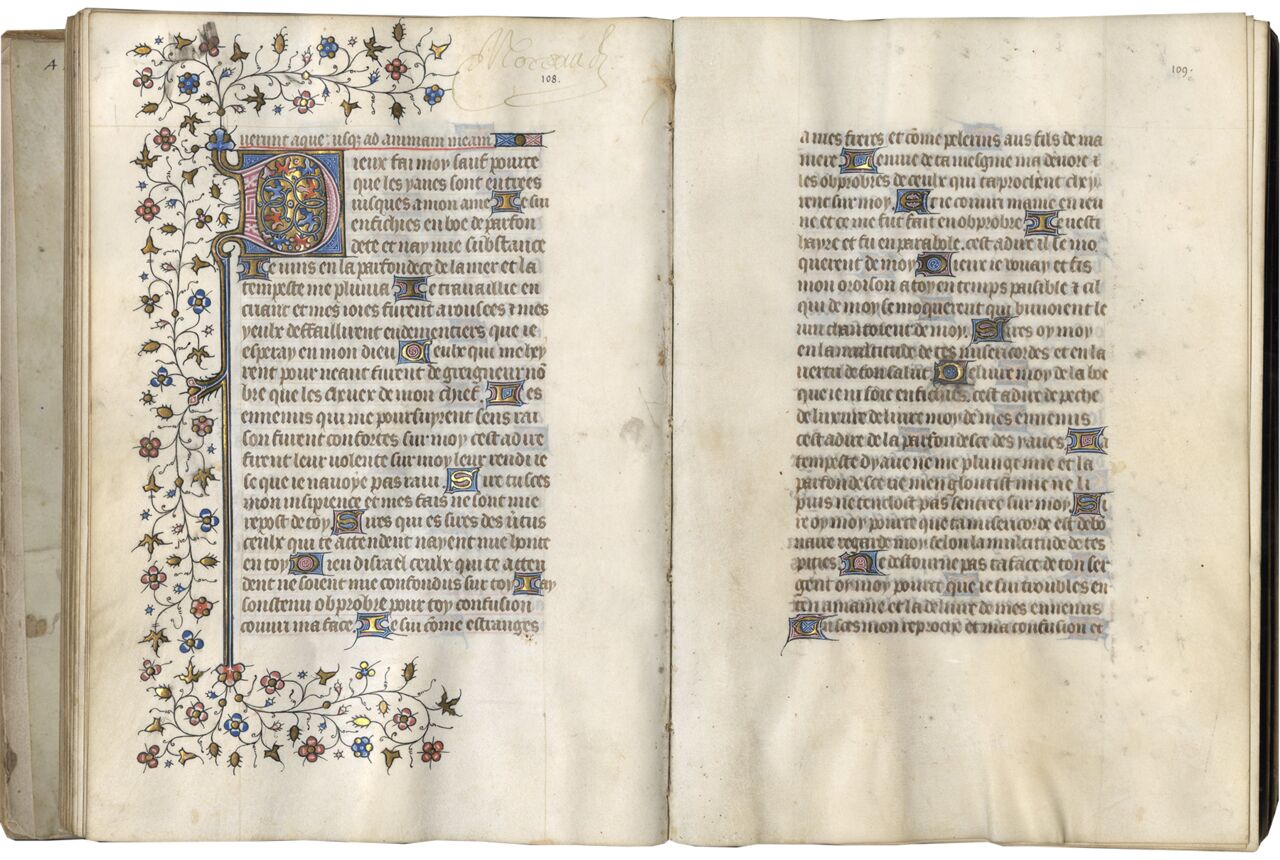 108.
uerunt aque: usq; ad animam meam
Dieux fai moy sauf pource
que les yaues sont entrees
iusques a mon ame Ie sui
enfichies en boe de parfon
dece et nay mie substance
Ie uins en la parfondece de la mer et la
tempeste me plunia Ie trauaillie en
criant et mes ioies furent arousees & mes
yeulx deffaillirent endementiers que ie
esperay en mon dieu Ceulx qui me hey
rent pour neant furent de greigneur nõ
bre que les cheuex de mon chief. Les
ennemis qui me poursuyrent sens rai
son furent confortes sur moy cest a dire
firent leur uolente sur moy leur rendi ie
se que ie nauoye pas raui. Sire tu sces
mon insipience et mes fais ne sont mie
repost de toy Sires qui es sires des ũtus
ceulx qui te attendent nayent mie honte
en toy Dieu disrael ceulx qui te atten
dent ne soient mie confondus sur toy Iay
soustenu obprobre pour toy confusion
couuri ma face. Ie sui cõme estranges
109.
a mes freres et cõme pelerins aus fils de ma
mere Lenuie de ta mesgnie ma deuore &
les obprobres de ceulx qui ta proclent chey
rent sur moy. Et ie couuri mame en ieu
ne et ce me fut fait en obprobre Ie uesti
hayre et fu en parabole. cest a dire il se mo
querent de moy Dieux ie uouay et fis
mon oroison a toy en temps paisible & cil
qui de moy se moquerent qui buuoient le
uin chantoient de moy. Sires oy moy
en la multitude de tes misericordes et en la
uerite de ton salut Deliure moy de la boe
que ie ni soie enfichies. cest a dire de peche
de luxure deliure moy de mes ennemis
cest a dire de la parfondesce des yaues La
tempeste dyaue ne me plunge mie et la
parfondesce ne mengloutist mie ne li
puis ne tencloit pas sentree sur moy S
ire oy moy pource que ta misericorde est debo
naire regarde moy selon la multitude de tes
pities Ne destourne pas ta face de ton ser
gent oy moy pource que ie sui troubles en
ten a mame et la deliure de mes ennemis
Tu sces mon reproche et ma confusion et